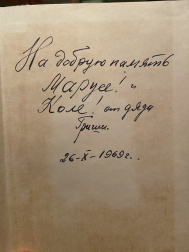 На добрую память
Марусе! и
Коле! от дяди
Гриши.
26-X-1969г.